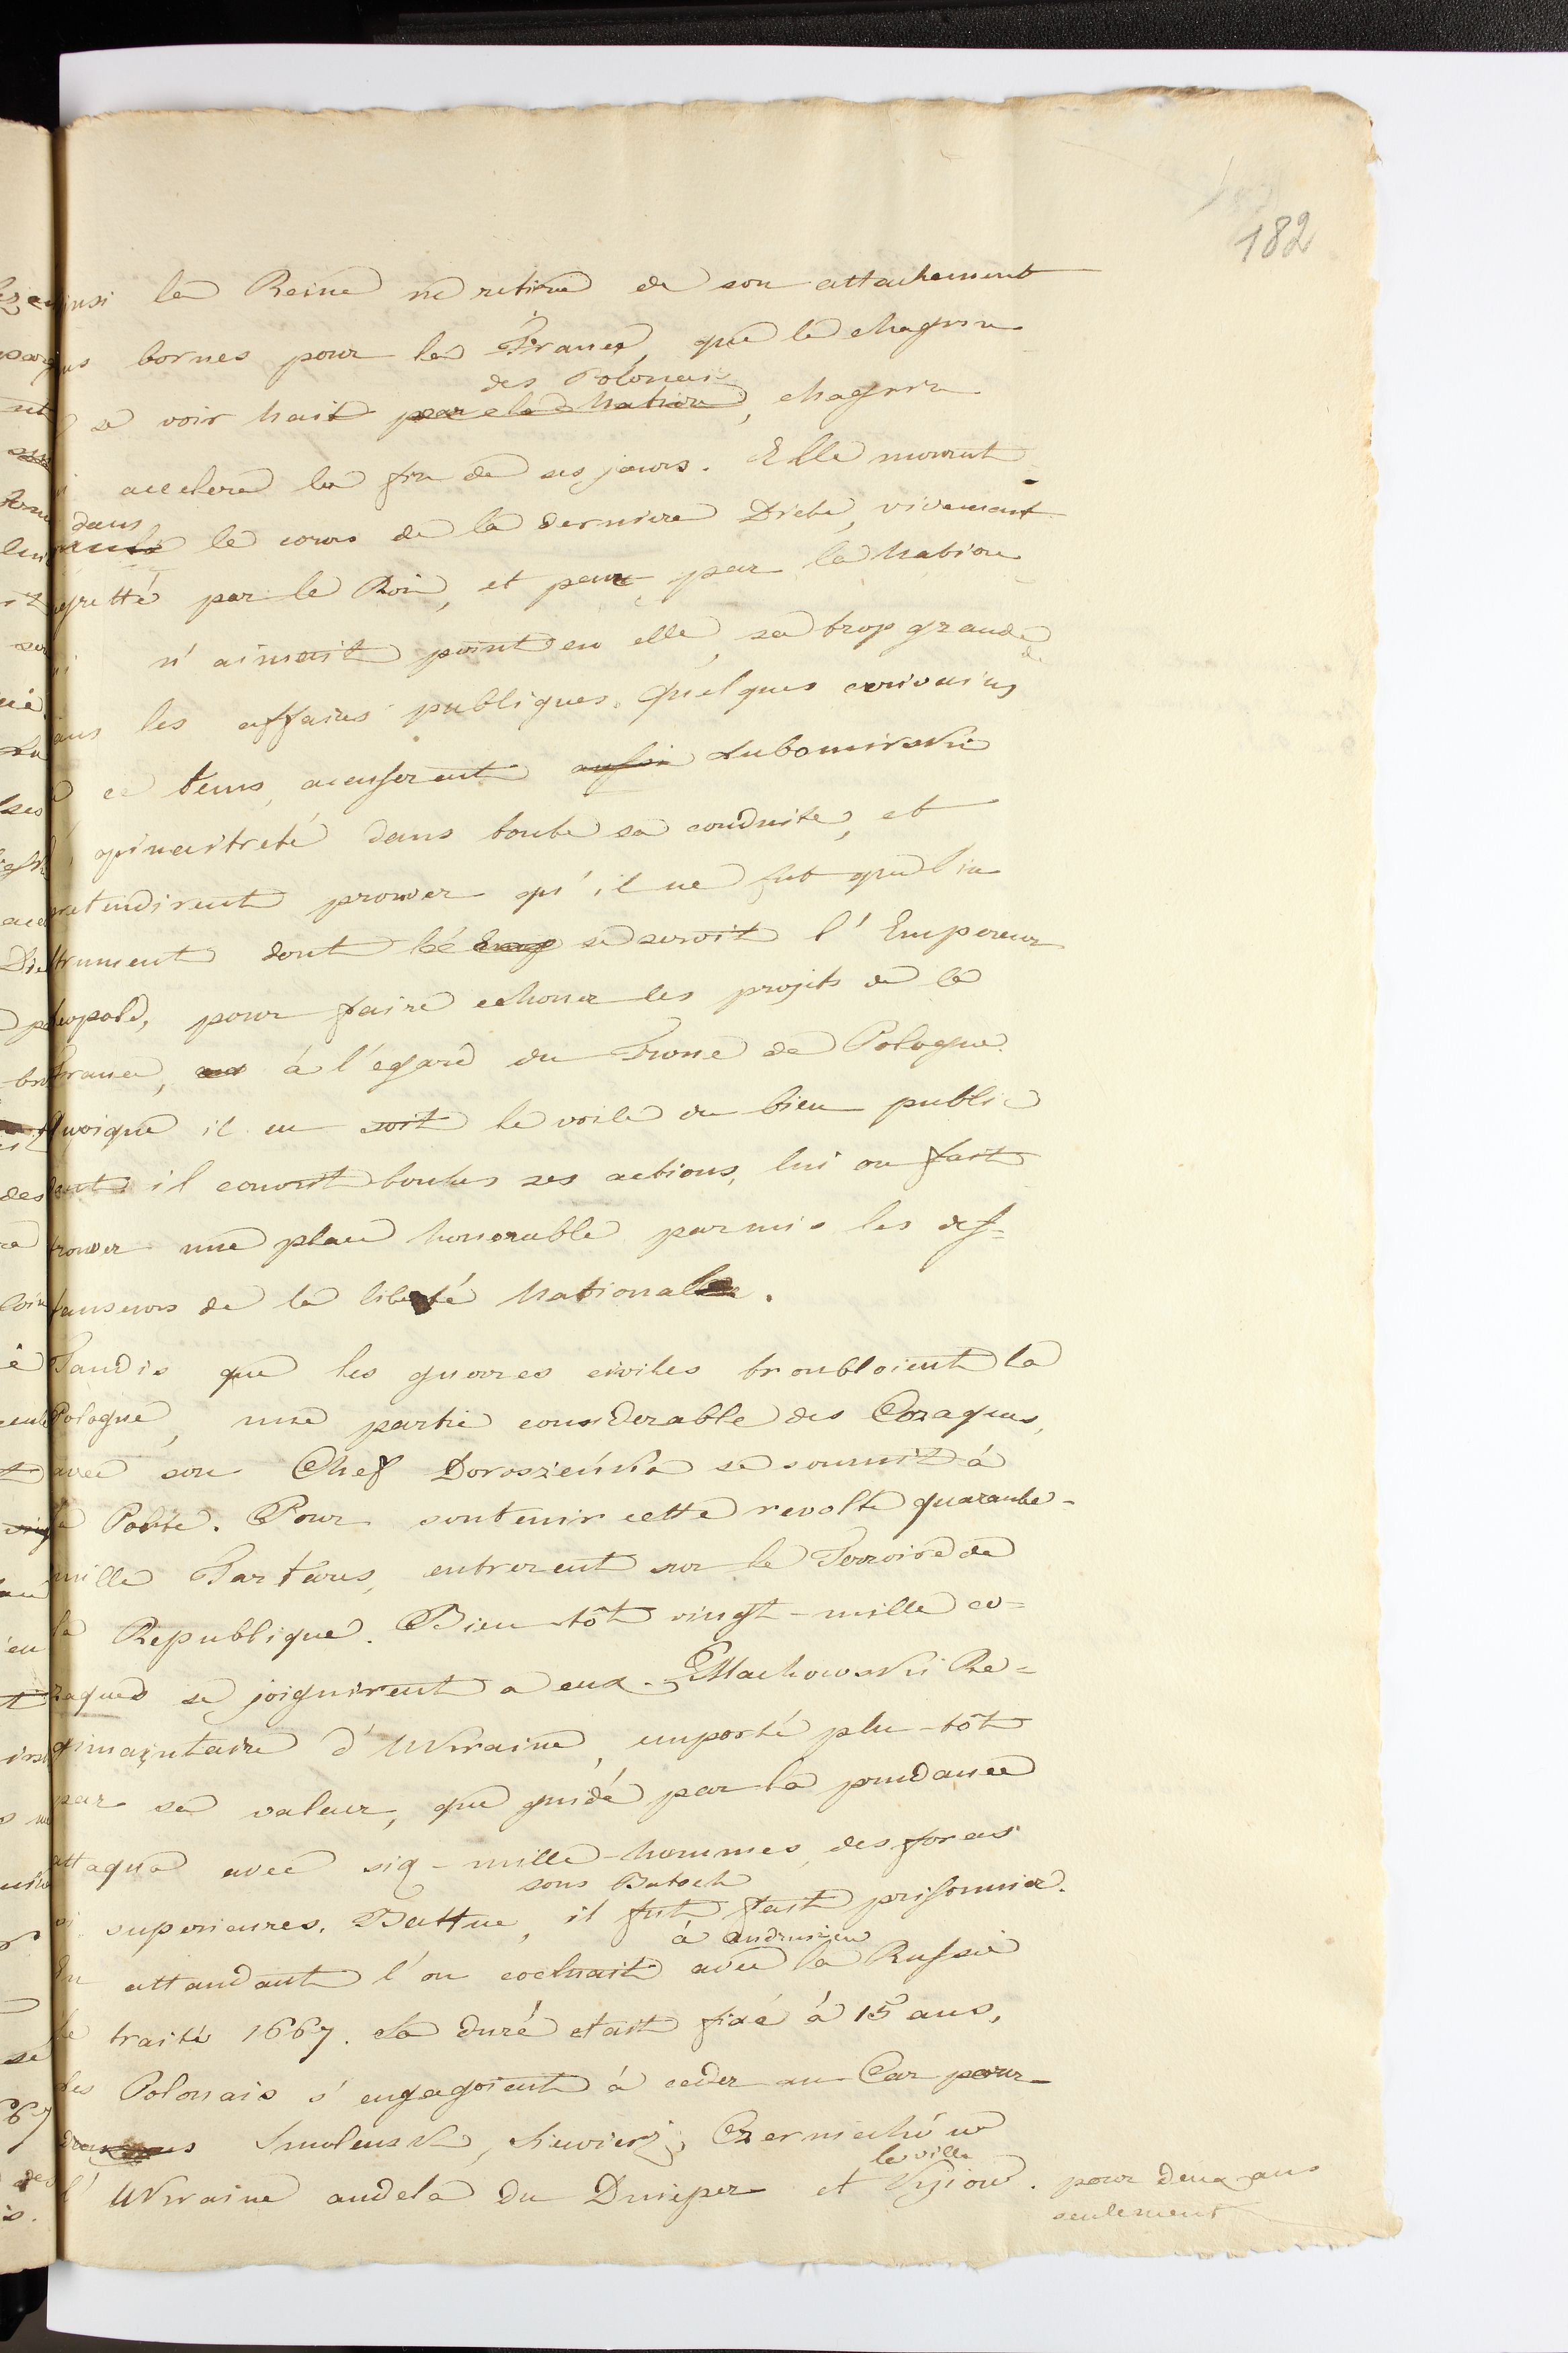 182
insi la Reine ne retira de son attachement
ns bornes pour la France, que le chagrin
des Polonais
se voir hait par la Nation, chagrin
accelera la fin de ses jours. Elle mourut
dans
le cours de la derniere Diete, vivement
egretté par le Roi, et peu par la Nation
n'aimait point en elle, sa trop grande
ans les affaires publiques. Quelques ecrivains
ce tems, accuserent aussi Lubomirski
opinaitreté dans toute sa conduite, et
retendirent prouver qu'il ne fut que l'in
trument dont se servoit l'Empereur
Leopold, pour faire echouer les projets de la
France, à l'egard du Trone de Pologne.
Quoique il en soit le voile du bien public
dont il couvrit toutes ses actions, lui on fait
trouver une place honorable parmis les def=
fanseurs de la liberté National.
Tandis que les guerres civiles troubloient la
Pologne, une partie considerable des Cozaques,
avec son Chef Doroszeńko se soumit à
la Porte. Pour soutenir cette revolte quarante-
mille Tartares, entrerent sur le Terroire de
la Republique. Bientôt vingt-mille co=
zaques se joignirent a eux. Machowski Re=
gimentaire d'Ukraine, emporté plu-tôt
par sa valeur, que guidé par la prudance
attaqua avec six-mille-hommes, des forces
sous Batoch
si superieures. Battue, il fut fait prisonnier.
à Andruszew
En attandant l'on concluait avec la Russie
le traité 1667. La duré etait fixé à 15 ans,
les Polonais s'engagoient à ceder au Czar pour
Smolensk, Siewierz, Czerniechów
la ville
l'Ukraine audela du Dnieper et Kijiow. pour deux ans
seulement